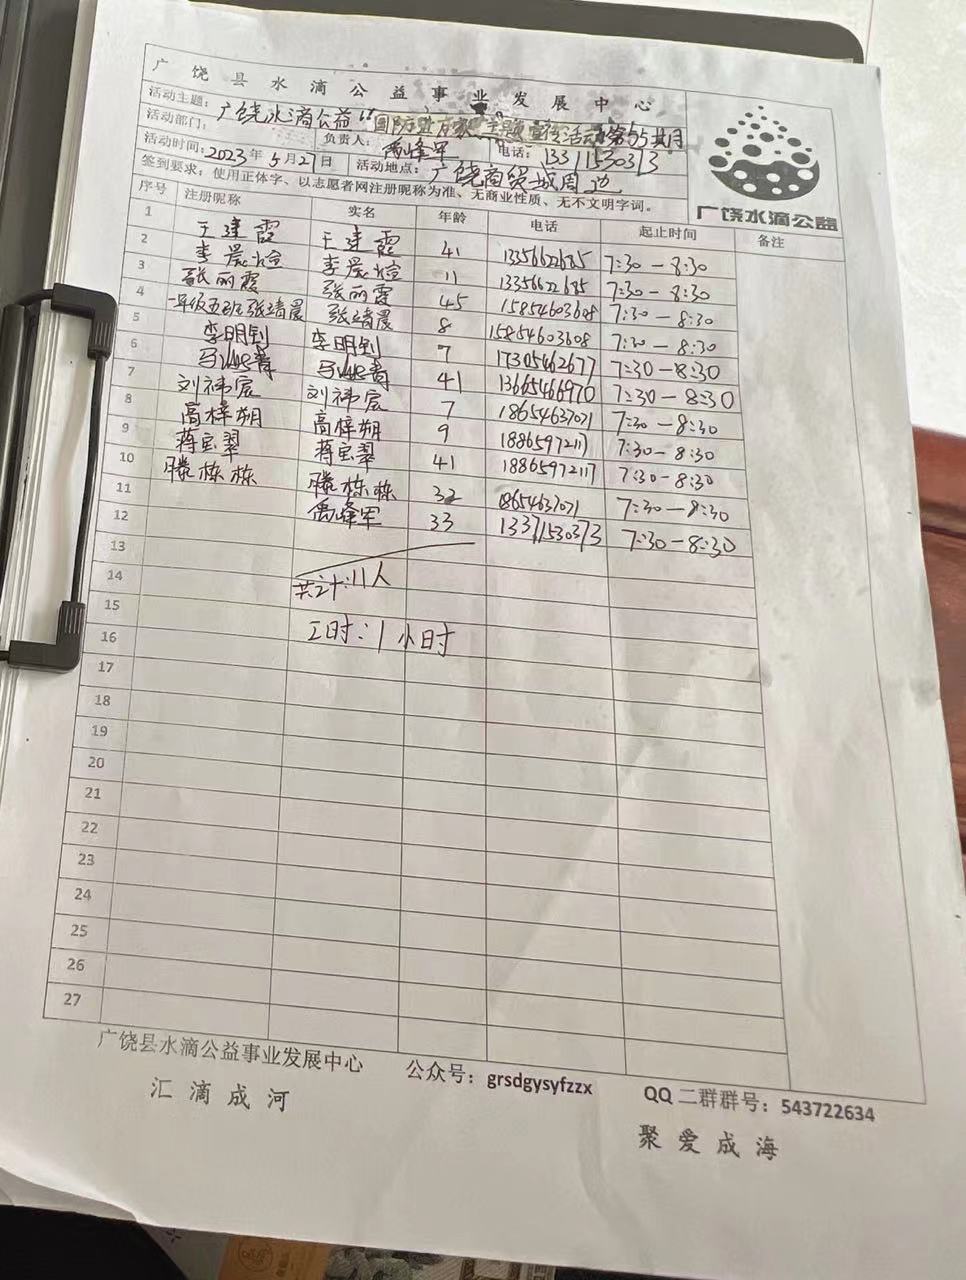 广饶县水滴公益事业发展中心
活动主题：广饶水滴公益“国防进万家”主题宣传活动第55共月
活动部门： 负责人：禹峰军 电话：13371530373
活动时间：2023年5月27日 活动地点：广饶商贸城周边
签到要求：使用正体字、以志愿者网注册昵称为准、无商业性质、无不文明字词。
广饶水滴公益
序号 注册昵称 实名 年龄 电话 起止时间 备注
1 于建霞 于建霞 41 13356622685 7:30-8:30
2 李晨煊 李晨煊 11 13356622685 7:30-8:30
3 张丽霞 张丽霞 45 15854603608 7:30-8:30
4 一年级五班张靖晨 张靖晨 8 15854603608 7:30-8:30
5 李明钊 李明钊 7 17305462677 7:30-8:30
6 马 马 41 13665466970 7:30-8:30
7 刘祎宸 刘祎宸 7 18654637071 7:30-8:30
8 高梓朔 高梓朔 9 18865972117 7:30-8:30
9 蒋宝翠 蒋宝翠 41 18865972117 7:30-8:30
10 滕栋栋 滕栋栋 32 18654637071 7:30-8:30
11 禹峰军 33 13371530373 7:30-8:30
12
13
14 共计:11人
15
16 工时:1小时
17
18
19
20
21
22
23
24
25
26
27
广饶县水滴公益事业发展中心 公众号：grsdgysyfzzx QQ二群群号：543722634
汇滴成河 聚爱成海